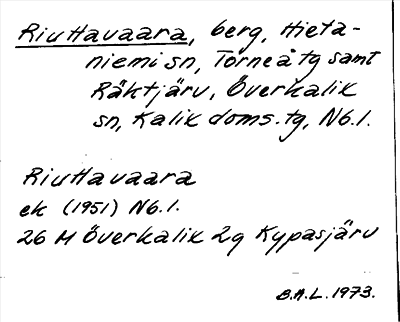 Riuttavaara, berg, Hieta-
niemi sn, Torneå tg samt
Räktjärv, Överkalix
sn, Kalix doms.tg, Nb.l.
Riuttavaara
ek (1951) Nb.l.
26 M Överkalix 2g Kypasjärv
B.A.L. 1973.